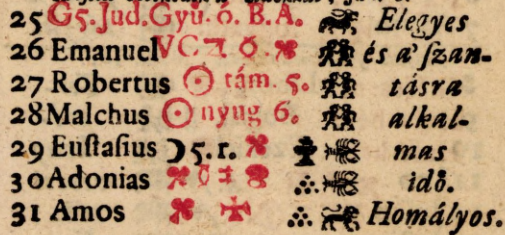 25 G5. Jud. Gyü. ő. B. A. Elegyes
26 Emanuel VC♃ ☿. és a' ſzan-
27 Robertus ☉ tám. 5. tásra
28 Malchus ☉ nyug 6. alkal-
29 Euſtaſius ☽ 5. r. mas
30 Adonias idő.
31 Amos Homályos.